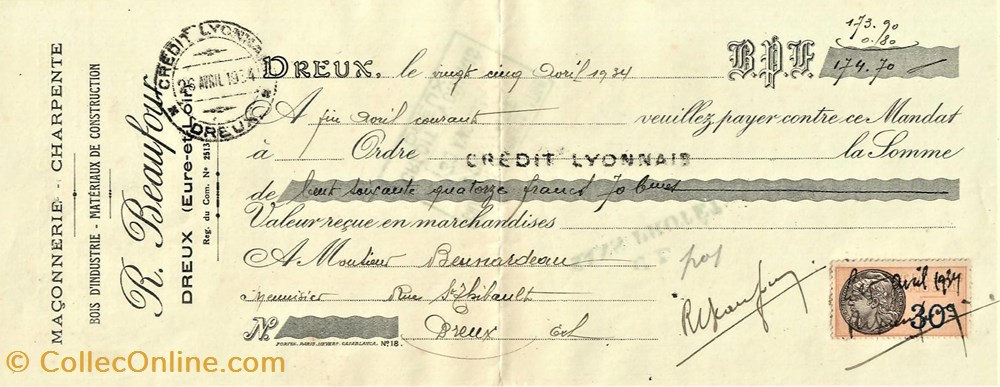 MAÇONNERIE - CHARPENTE
BOIS D'INDUSTRIE - MATÉRIAUX DE CONSTRUCTION
R. Beaufour
DREUX (Eure-et-Loir)
Reg. du Com. Nº 2513
CRÉDIT LYONNAIS
26 AVRIL 1934
DREUX
173.90
0.80
DREUX, le vingt cinq Avril 1934 B.P.F. 174.70
A fin Avril courant veuillez payer contre ce Mandat
à Ordre CRÉDIT LYONNAIS la Somme
de Cent soixante quatorze francs 70 cmes
Valeur reçue en marchandises
A Monsieur Bernardeau
Menuisier Rue St Thibault
Dreux, E&L
Nº
Nº 18.
RBeaufour
avril 1934
30c
© CollecOnline.com